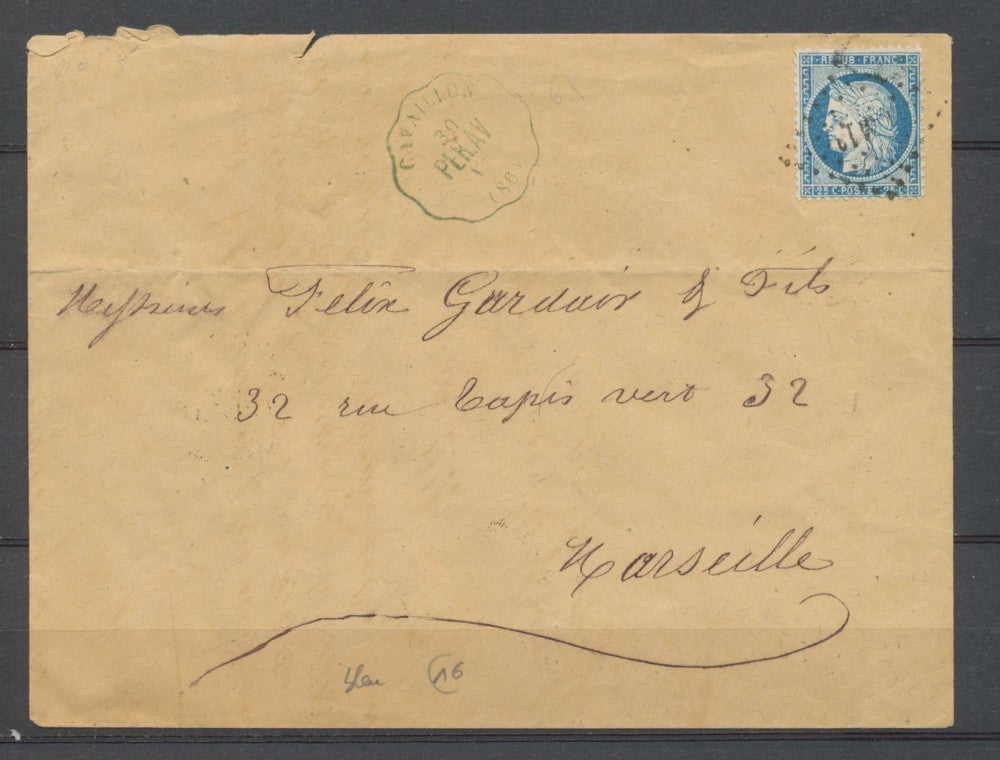 CAVAILLON
30
PER.AV
1
(86)
REPUB·FRANC·
25 C·POSTES·25 C
Messieurs Felix Gardair & Fils
32 rue tapis vert 32
Marseille